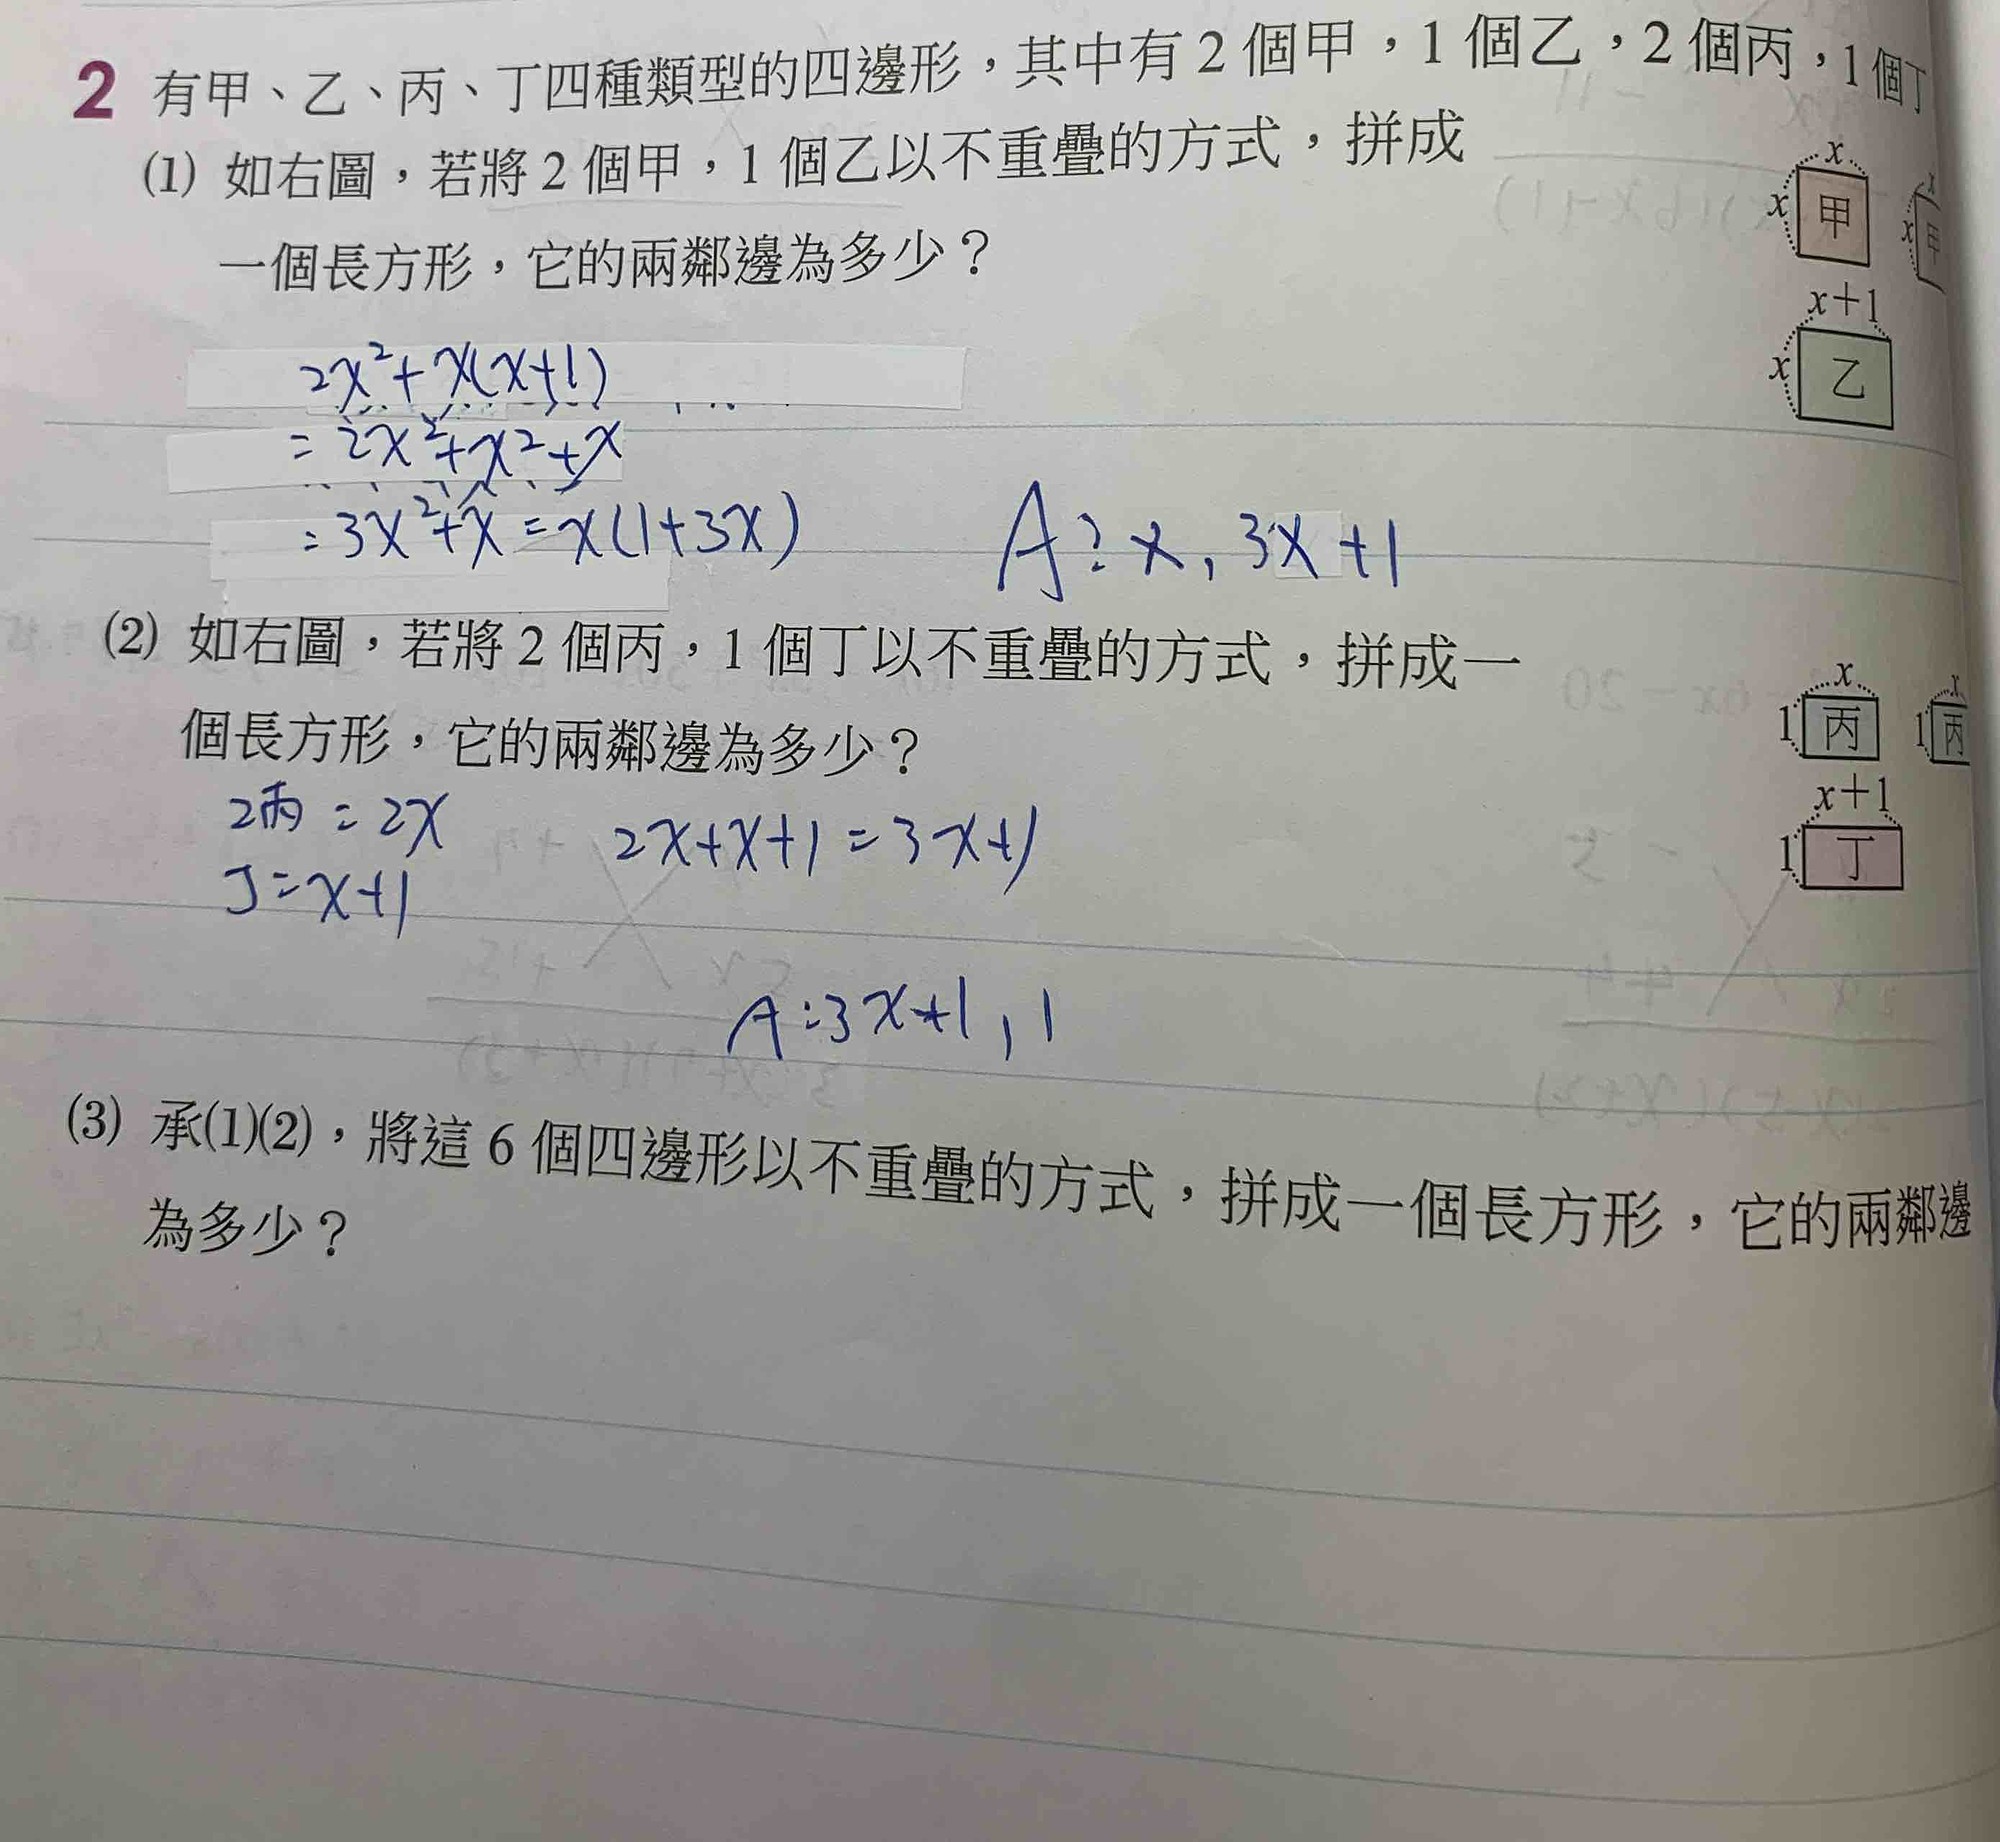 2 有甲、乙、丙、丁四種類型的四邊形，其中有2個甲，1個乙，2個丙，1個丁
(1) 如右圖，若將2個甲，1個乙以不重疊的方式，拼成
一個長方形，它的兩鄰邊為多少？
x
x 甲
x
x 甲
x+1
x 乙
2x²+x(x+1)
=2x²+x²+x
=3x²+x=x(1+3x)
A：x, 3x+1
(2) 如右圖，若將2個丙，1個丁以不重疊的方式，拼成一
個長方形，它的兩鄰邊為多少？
x
1 丙
x
1 丙
x+1
1 丁
2丙=2x
丁=x+1
2x+x+1=3x+1
A:3x+1, 1
(3) 承(1)(2)，將這6個四邊形以不重疊的方式，拼成一個長方形，它的兩鄰邊
為多少？